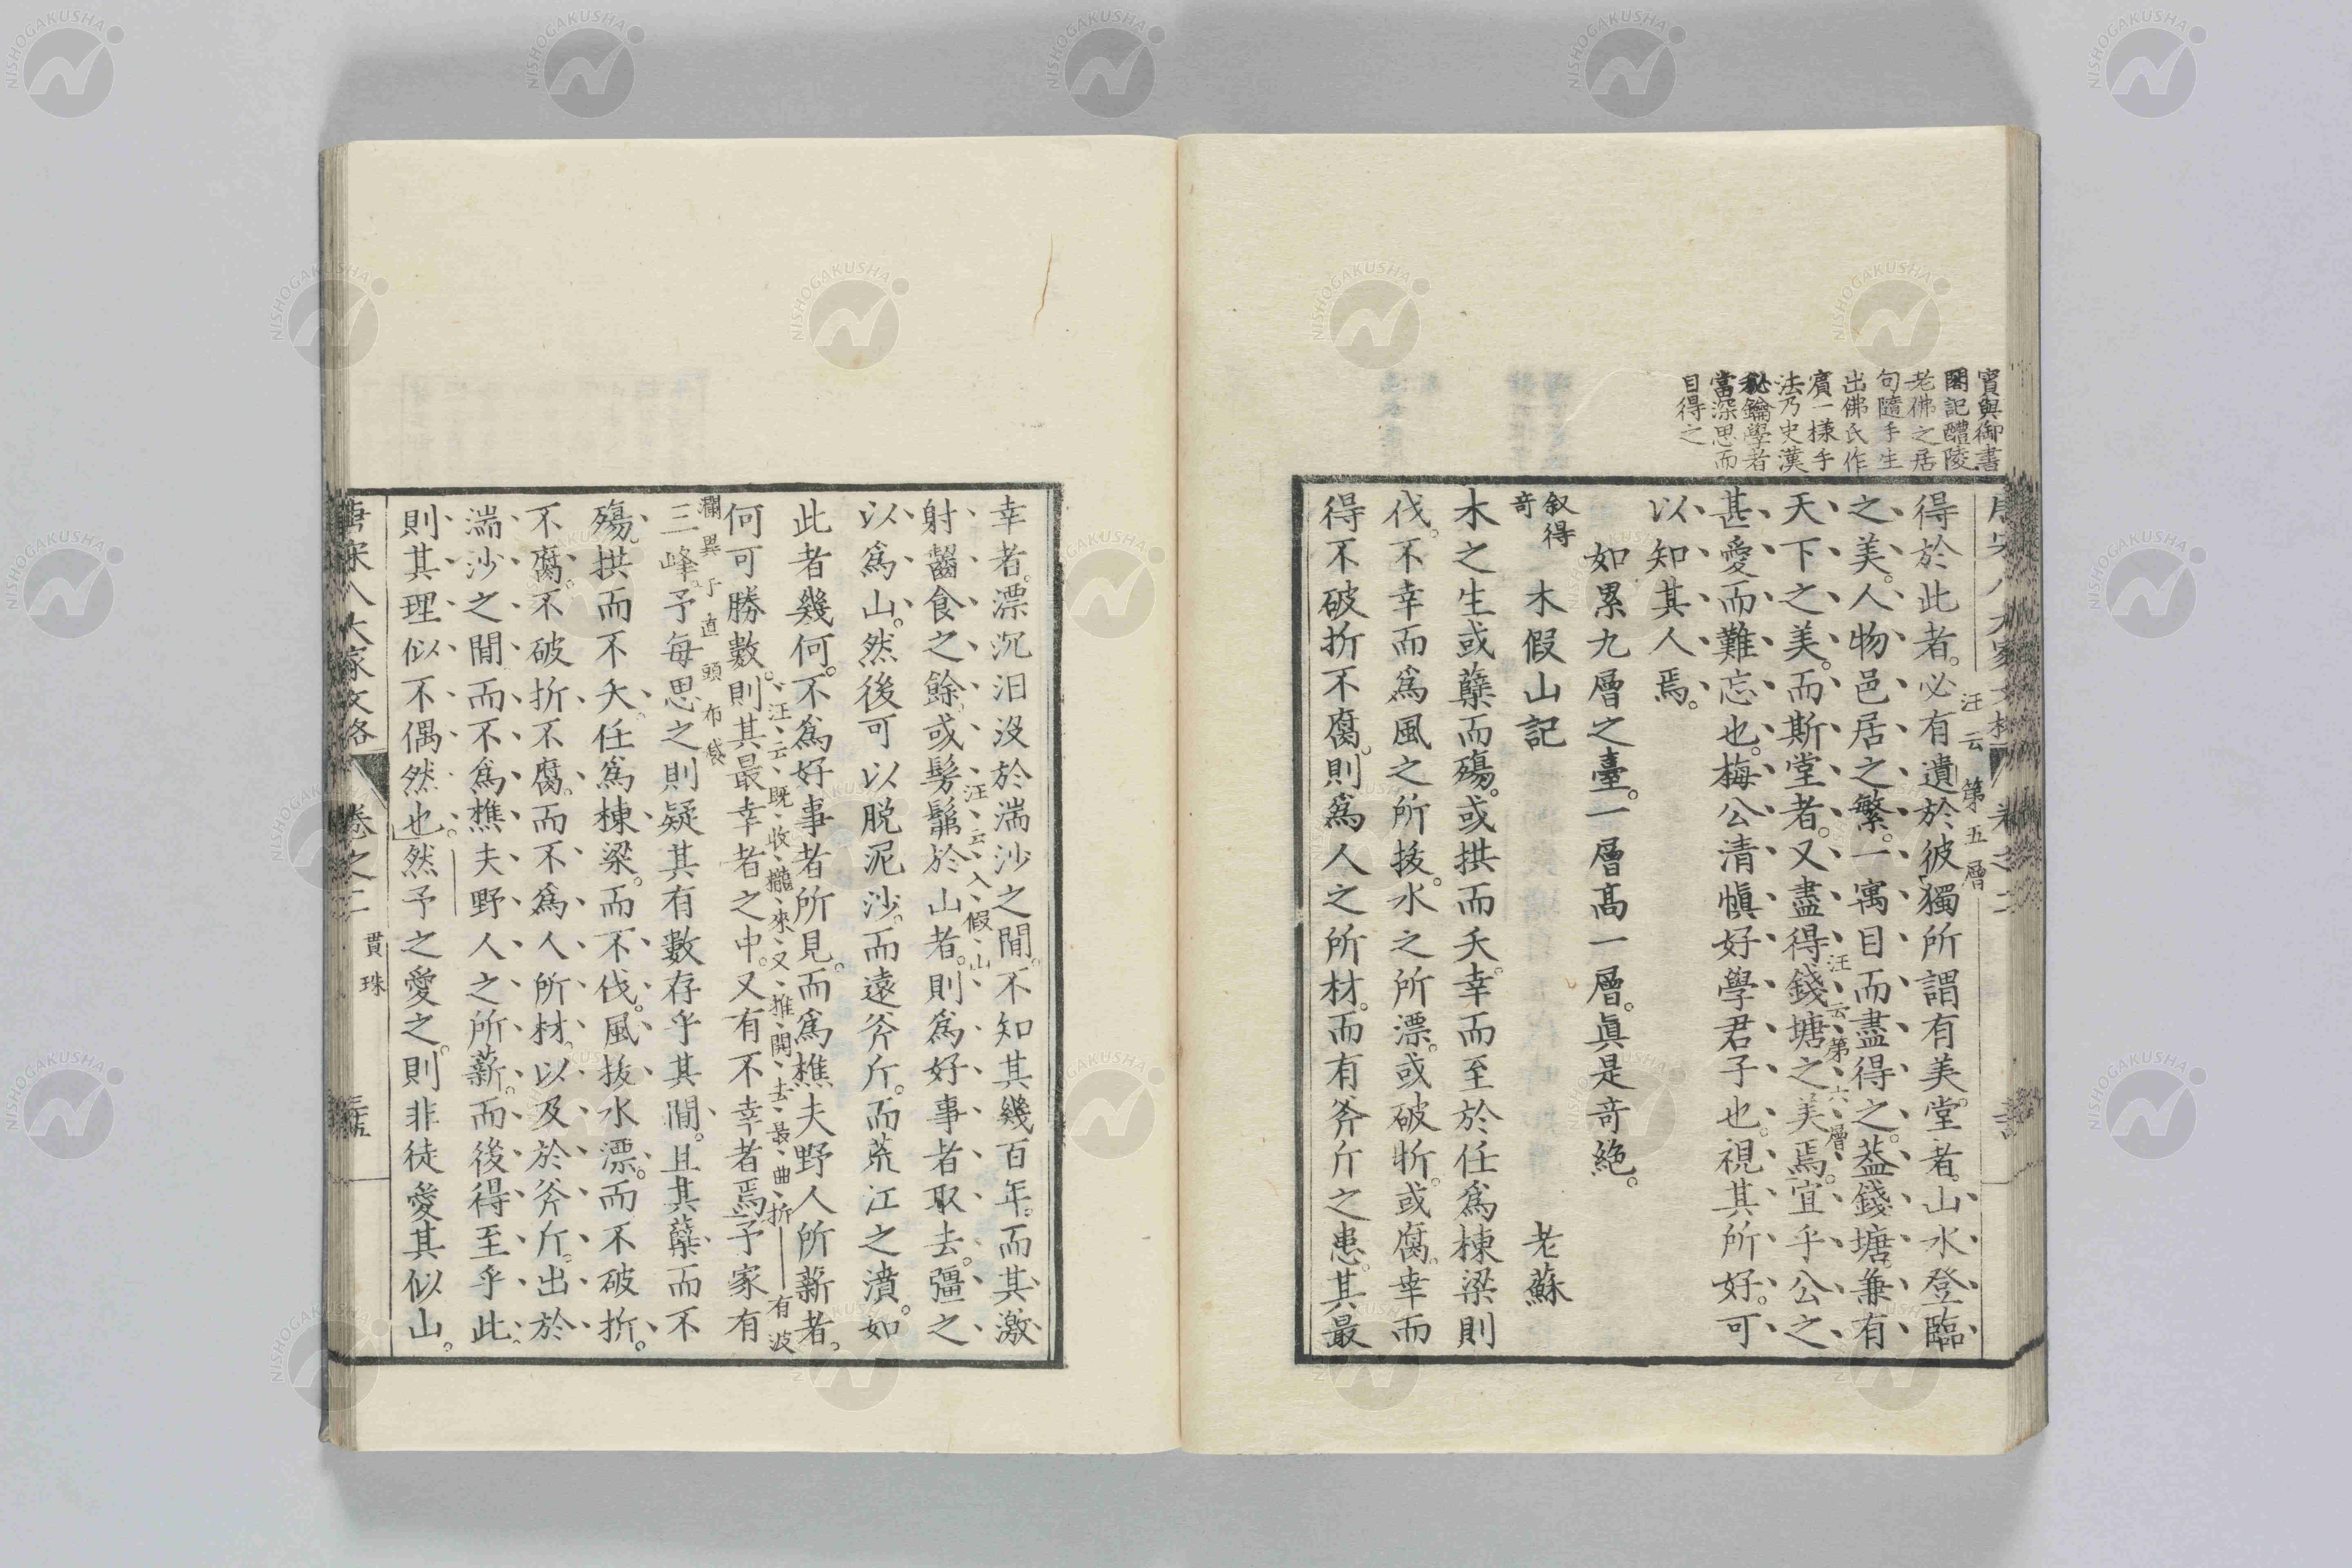 賓與御書
閣記醴陵
老佛之居
句隨手生
出佛氏作
賓一様手
法乃史漢
秘鑰學者
當深思而
自得之
汪云 第五層
得於此者。必有遺於彼。獨所謂有美堂者。山水登臨
之美。人物邑居之繁。一寓目而盡得之。葢錢塘兼有
汪云第六層
天下之美。而斯堂者。又盡得錢塘之美焉。宜乎公之
甚愛而難忘也。梅公清愼好學君子也。視其所好。可
以知其人焉。
如累九層之臺。一層高一層。眞是奇絶。
叙得
奇
木假山記 老蘇
木之生或蘖而殤。或拱而夭。幸而至於任爲棟梁則
伐。不幸而爲風之所拔。水之所漂。或破折。或腐。幸而
得不破折不腐。則爲人之所材。而有斧斤之患。其最
幸者。漂沉汩沒於湍沙之間。不知其幾百年。而其激
汪云入假山
射齧食之餘。或髣髴於山者。則爲好事者取去。彊之
以爲山。然後可以脱泥沙。而遠斧斤。而荒江之濆。如
此者幾何。不爲好事者所見。而爲樵夫野人所薪者。
汪云既收攏來又推開去最曲折 有波
何可勝數。則其最幸者之中。又有不幸者焉。予家有
瀾異于直頭布袋
三峰。予毎思之則疑其有數存乎其間。且其蘖而不
殤。拱而不夭。任爲棟梁。而不伐。風拔水漂。而不破折。
不腐。不破折不腐。而不爲人所材。以及於斧斤。出於
湍沙之間而不爲樵夫野人之所薪。而後得至乎此。
則其理似不偶然也。然予之愛之。則非徒愛其似山。
唐宋八大家文格 卷之二 貫珠 三十五
NISHOGAKUSHA